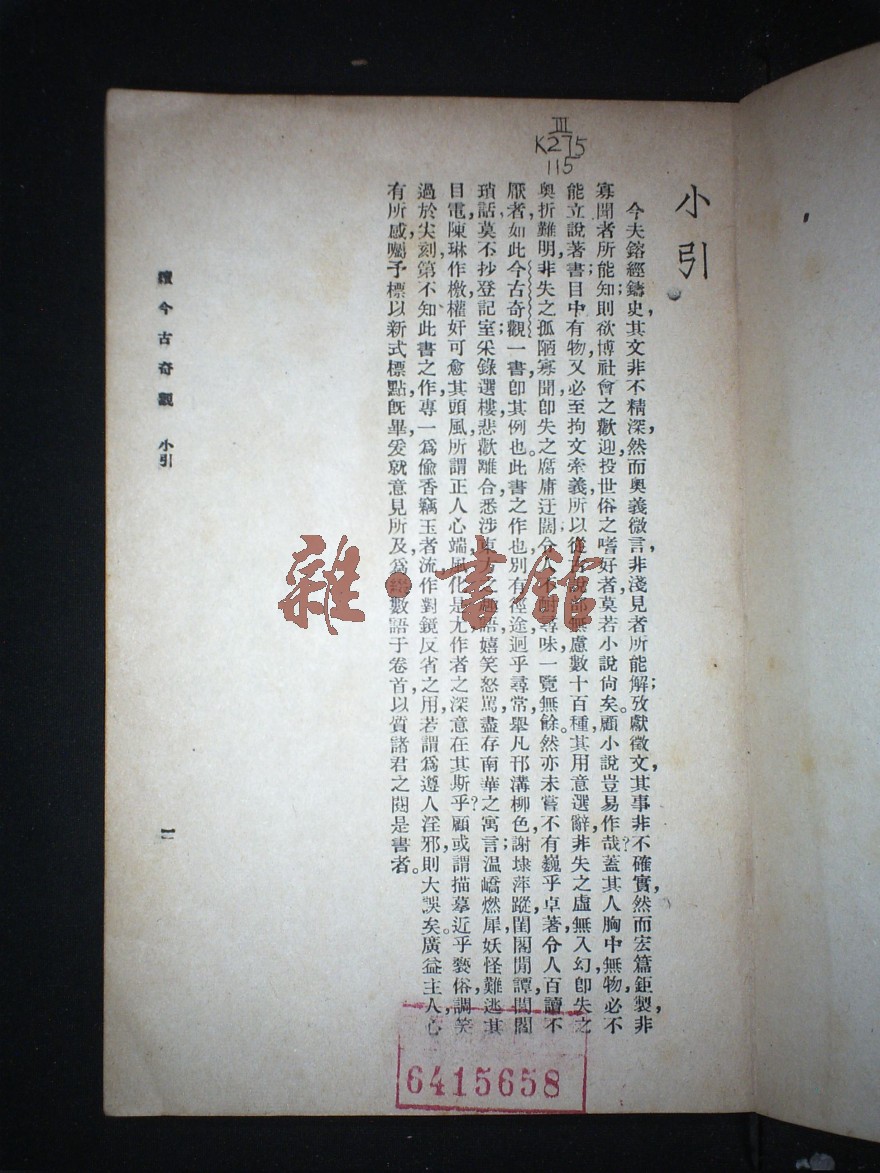 III
K275
115
小引
今夫鎔經鑄史,其文非不精深,然而奧義微言,非淺見者所能解;攷獻徵文,其事非不確實,然而宏篇鉅製,非
寡聞者所能知;則欲博社會之歡迎,投世俗之嗜好者,莫若小說尙矣。顧小說豈易作哉?蓋其人胸中無物,必不
能立說著書;目中有物,又必至拘文牽義,所以從說部無慮數十百種,其用意選辭,非失之虛無入幻,卽失之
奧折難明,非失之孤陋寡聞,卽失之腐庸迂闊,令人不耐尋味,一覽無餘。然亦未嘗不有巍乎卓著,令人百讀不
厭者,如此今古奇觀一書,卽其例也。此書之作也,別有徑途,迥乎尋常,舉凡邗溝柳色,謝埭萍蹤,閨閣閒譚,閭閻
瑣話,莫不抄登記室;采錄選樓,悲歡離合,悉涉東方之諧語,嬉笑怒罵,盡存南華之寓言;温嶠燃犀,妖怪難逃其
目電,陳琳作檄,權奸可愈其頭風,所謂正人心,端風化,是尤作者之深意在其斯乎?顧或謂描摹近乎褻俗,調笑
過於尖刻,第不知此書之作,專一爲偷香竊玉者流,作對鏡反省之用,若謂爲遵人淫邪,則大誤矣。廣益主人心
有所感,囑予標以新式標點,旣畢,爰就意見所及,爲綴數語于卷首,以質諸君之閱是書者。
續今古奇觀 小引
一
雜·書館
6415658